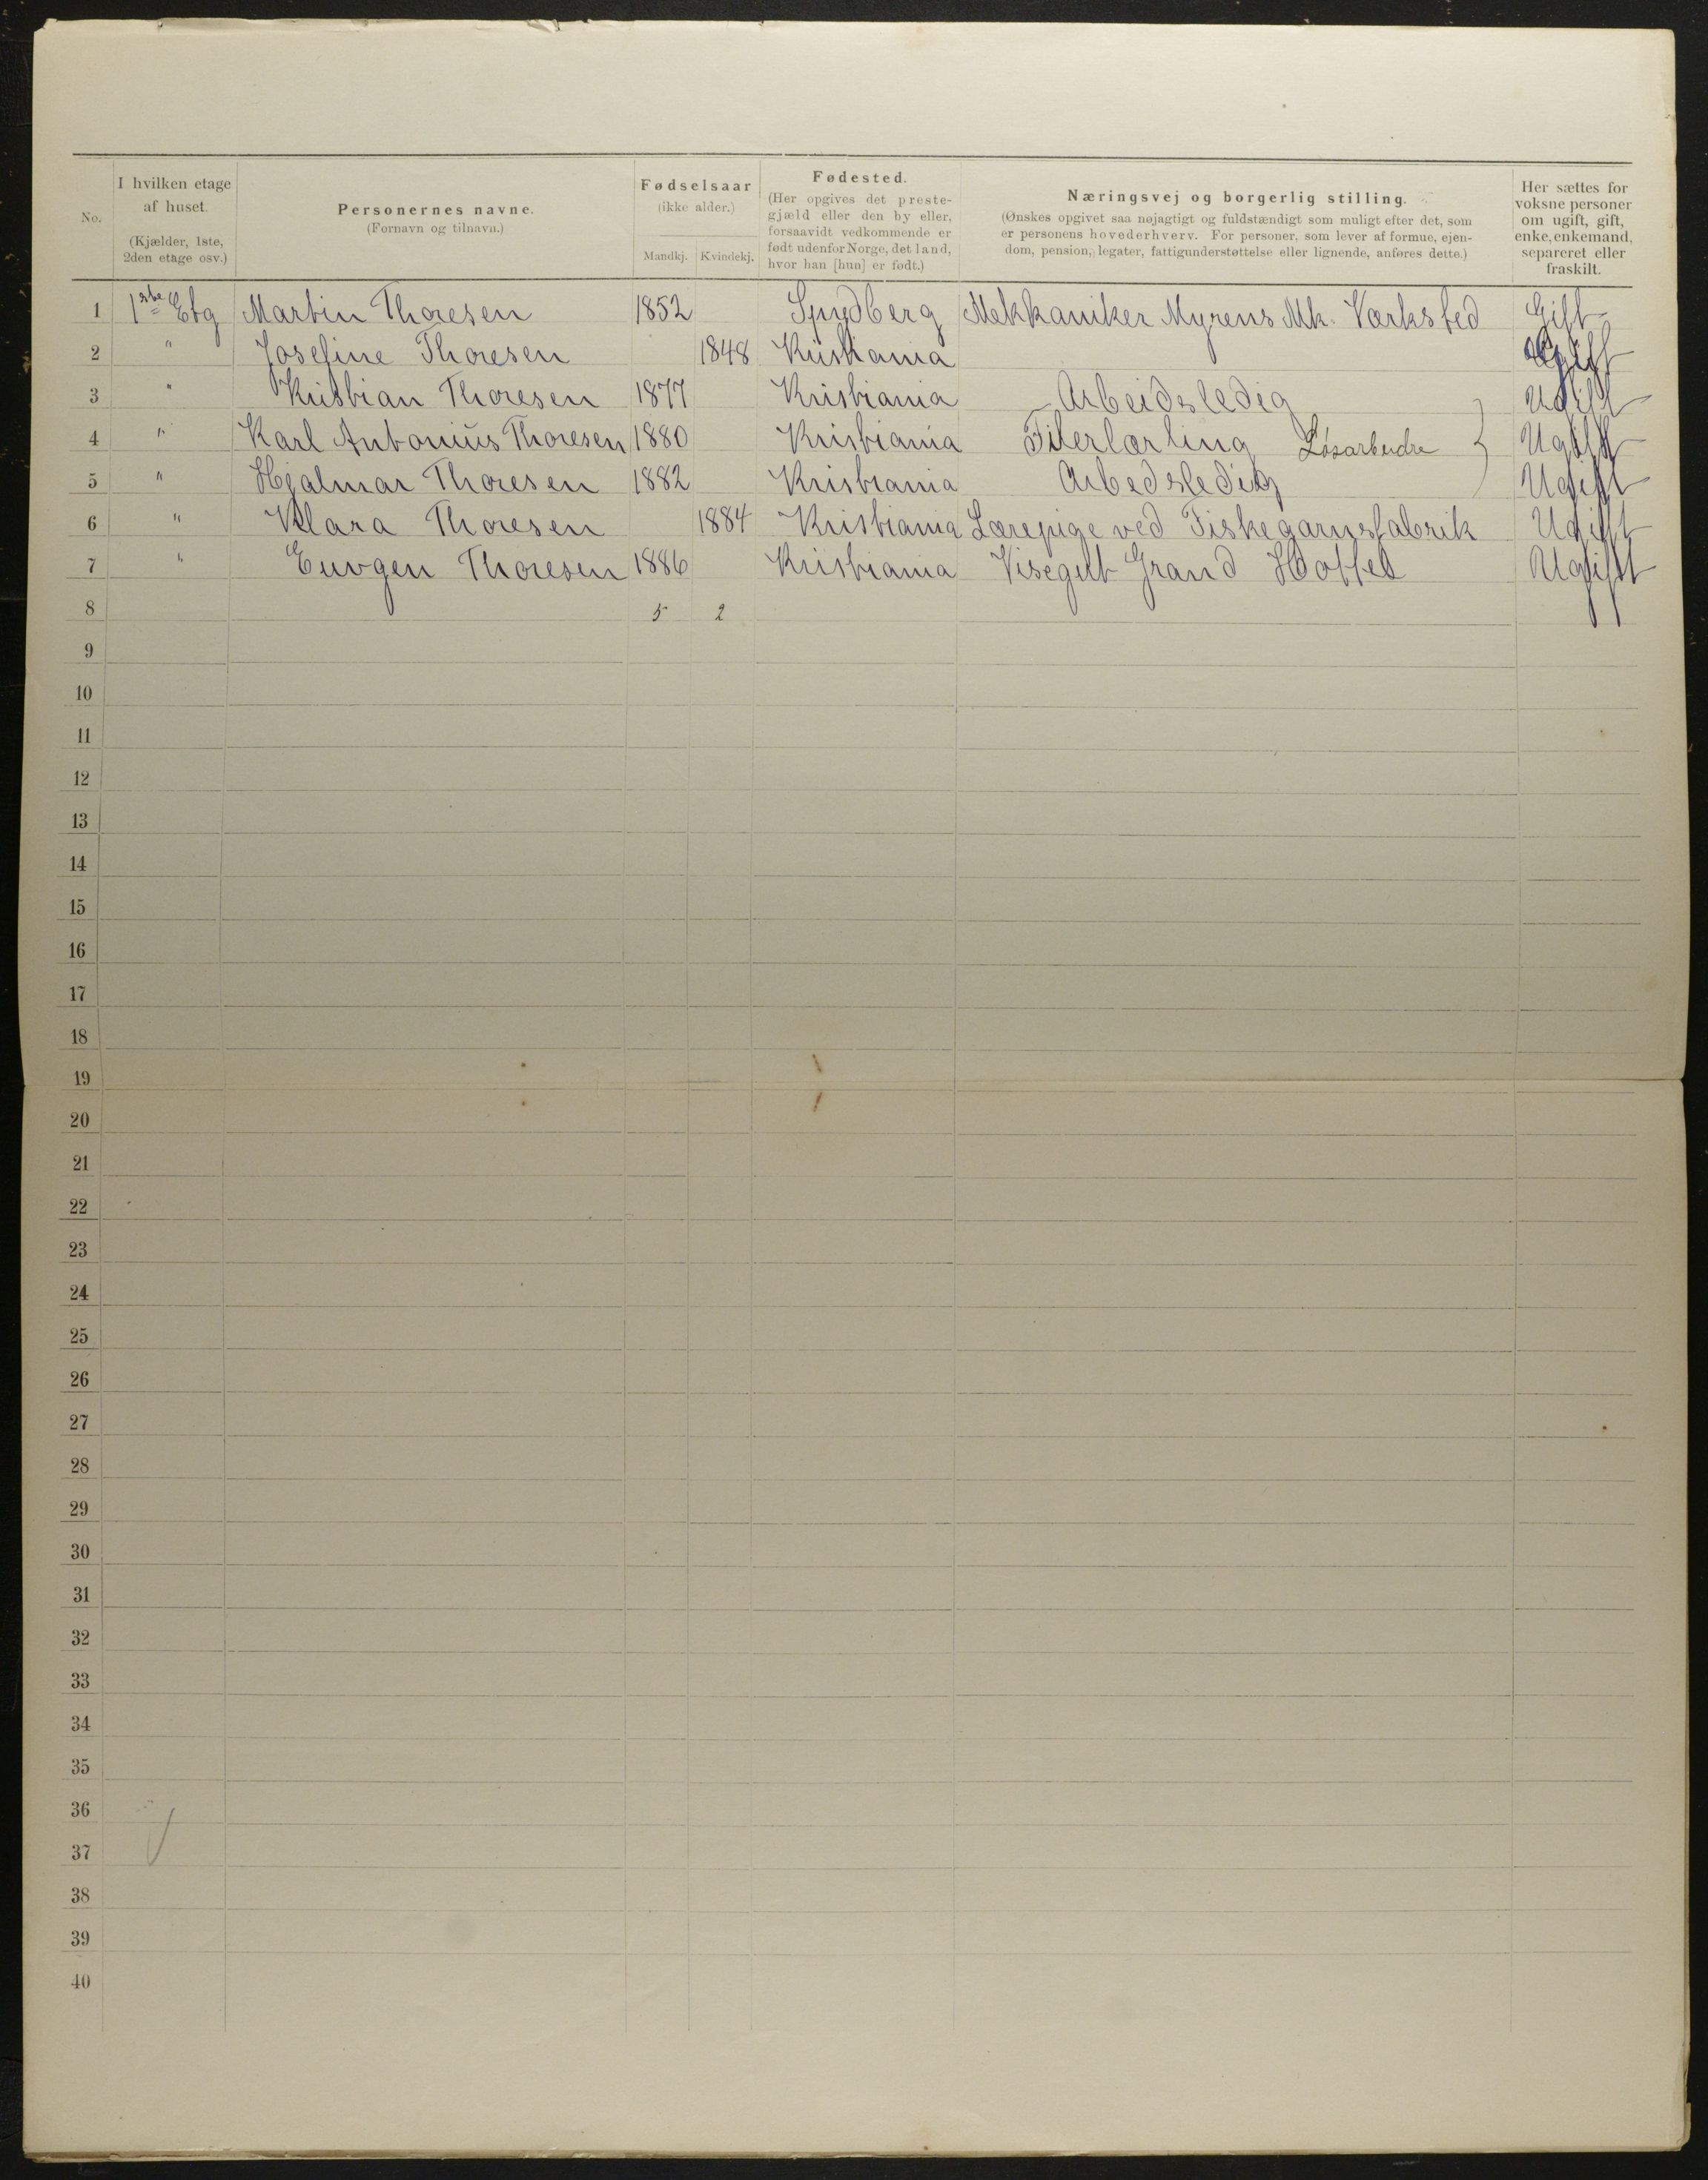 No.
I hvilken etage af huset.
(Kjælder, 1ste, 2den etage osv.)
Personernes navne.
(Fornavn og tilnavn.)
Fødselsaar
(ikke alder.)
Mandkj. Kvindekj.
Fødested.
(Her opgives det prestegjæld eller den by eller, forsaavidt vedkommende er født udenfor Norge, det land, hvor han [hun] er født.)
Næringsvej og borgerlig stilling.
(Ønskes opgivet saa nøjagtigt og fuldstændigt som muligt efter det, som er personens hovederhverv. For personer, som lever af formue, ejendom, pension, legater, fattigunderstøttelse eller lignende, anføres dette.)
Her sættes for voksne personer om ugift, gift, enke, enkemand, separeret eller fraskilt.
1 1ste Etg Martin Thoresen 1852 Spydberg Mekkaniker Myrens Mk. Værksted Gift
2 " Josefine Thoresen 1848 Kristiania Gift
3 " Kristian Thoresen 1877 Kristiania Arbeidsledig Ugift
4 " Karl Antonius Thoresen 1880 Kristiania Filerlærling Løsarbeidre } Ugift
5 " Hjalmar Thoresen 1882 Kristiania Arbedsledig Ugift
6 " Klara Thoresen 1884 Kristiania Lærepige ved Fiskegarnsfabrik Ugift
7 " Euvgen Thoresen 1886 Kristiania Visegut Grand Hottel Ugift
8 5 2
9
10
11
12
13
14
15
16
17
18
19
20
21
22
23
24
25
26
27
28
29
30
31
32
33
34
35
36
37
38
39
40